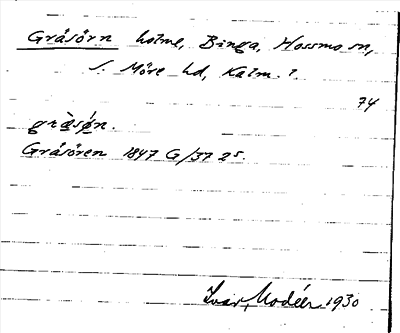 Gråsörn holme, Binga, Hossmo sn,
S. Möre hd, Kalm. l.
74
grå̀sǿn.
Gråsören 1847 G/37 25.
Ivar Modéer 1930